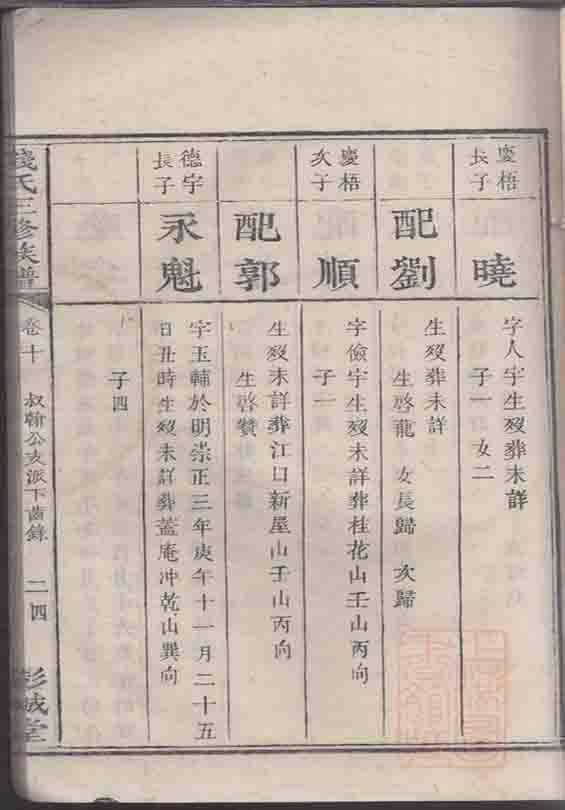 慶梧長子
曉
字人宇生歿葬未詳
子一 女二
配劉
生歿葬未詳
生啓龍 女長歸 次歸
慶梧次子
順
字儉宇生歿未詳葬桂花山壬山丙向
子一
配郭
生歿未詳葬江日新屋山壬山丙向
生啓贊
德宇長子
永魁
字玉輔於明崇正三年庚午十一月二十五
日丑時生歿未詳葬蓋庵冲乾山巽向
子四
錢氏三修族譜
卷十
叔翰公支派下齒錄
二四
彭城堂